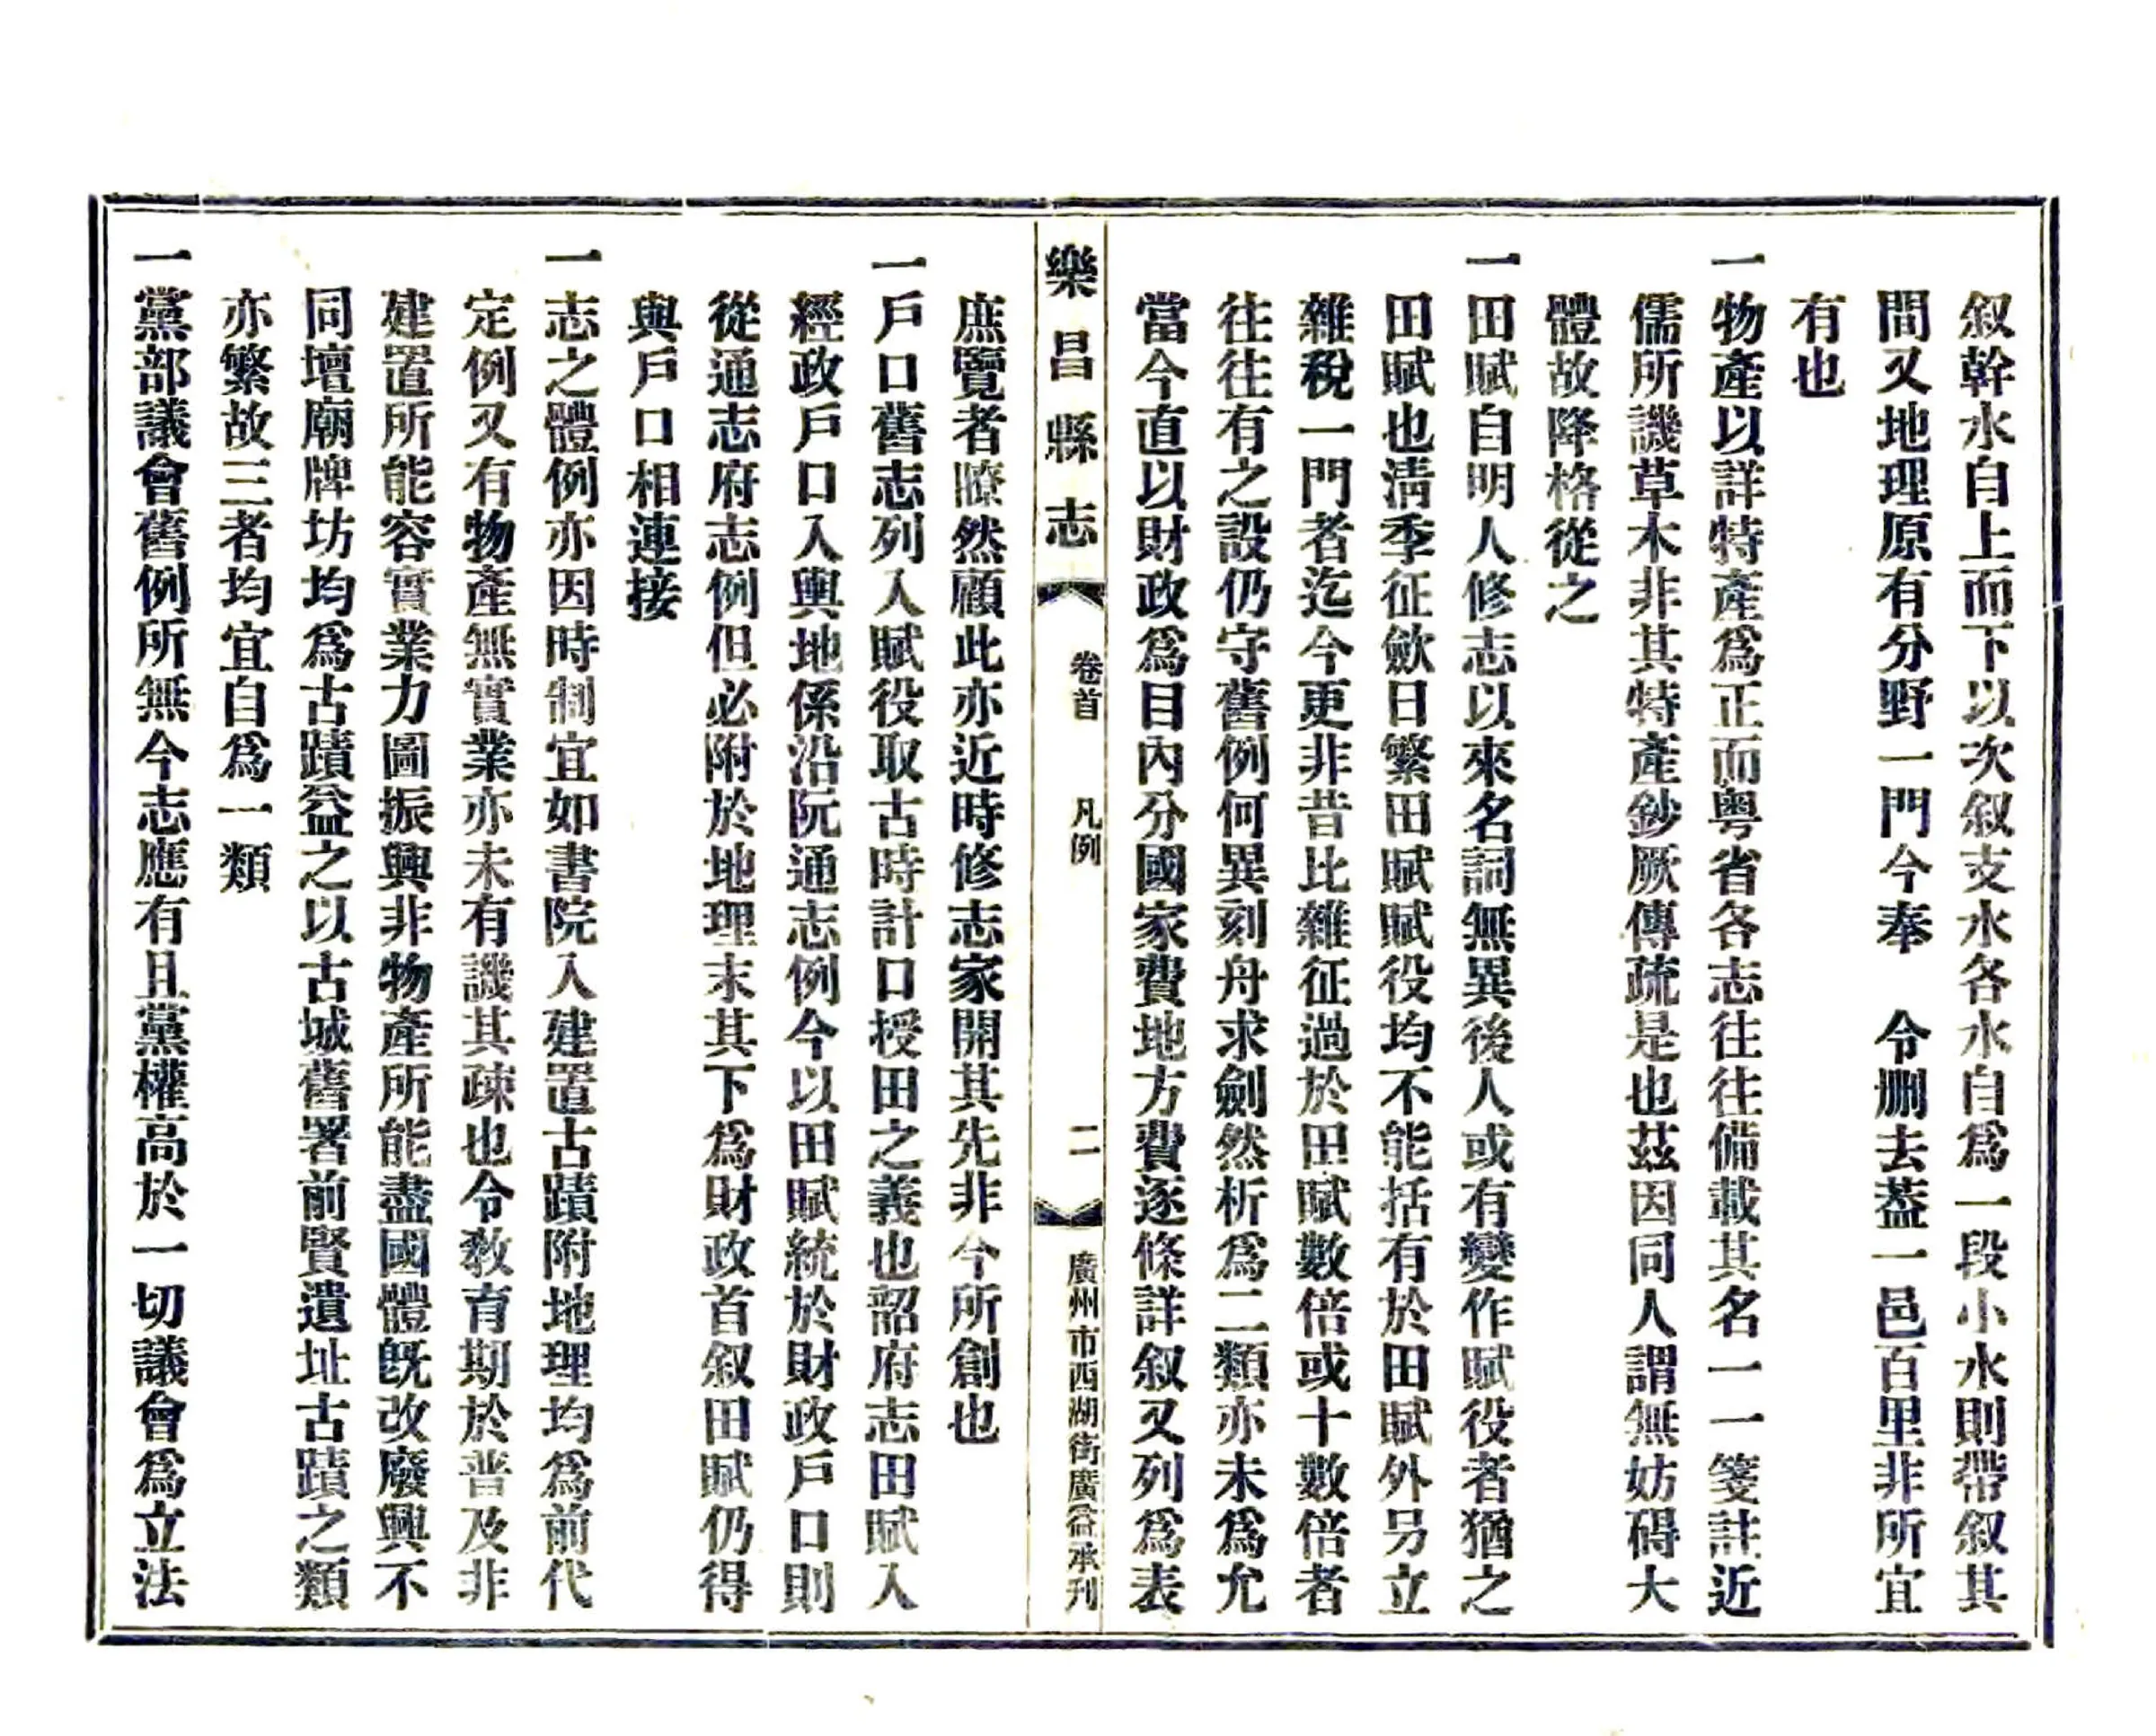 叙幹水自上而下以次叙支水各水自爲一段小水則帶叙其
間又地理原有分野一門今奉　令删去葢一邑百里非所宜
有也
一物產以詳特產爲正而粤省各志往往備載其名一一箋註近
儒所譏草木非其特產鈔厥傳疏是也茲因同人謂無妨碍大
體故降格從之
一田賦自明人修志以來名詞無異後人或有變作賦役者猶之
田賦也淸季征歛日繁田賦賦役均不能括有於田賦外另立
雜稅一門者迄今更非昔比雜征過於田賦數倍或十數倍者
往往有之設仍守舊例何異刻舟求劍然析爲二類亦未爲允
當今直以財政爲目內分國家費地方費逐條詳叙又列爲表
樂昌縣志
卷首　凡例
二
廣州市西湖街廣益承刊
庶覽者瞭然顧此亦近時修志家開其先非今所創也
一戶口舊志列入賦役取古時計口授田之義也韶府志田賦入
經政戶口入輿地係沿阮通志例今以田賦統於財政戶口則
從通志府志例但必附於地理末其下爲財政首叙田賦仍得
與戶口相連接
一志之體例亦因時制宜如書院入建置古蹟附地理均爲前代
定例又有物產無實業亦未有譏其疎也令敎育期於普及非
建置所能容實業力圖振興非物產所能盡國體旣改廢興不
同壇廟牌坊均爲古蹟益之以古城舊署前賢遺址古蹟之類
亦繁故三者均宜自爲一類
一黨部議會舊例所無今志應有且黨權高於一切議會爲立法